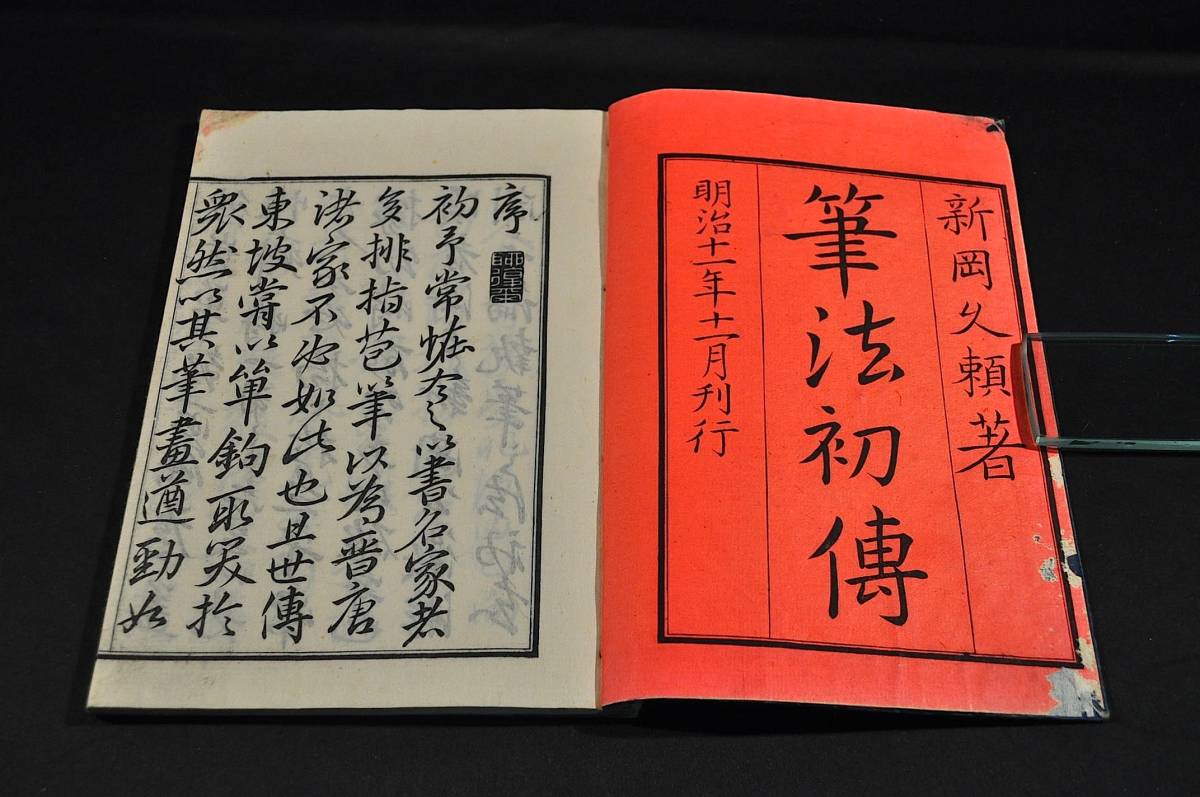 新岡久頼著
筆法初傳
明治十一年十一月刊行
序
初予常恠今之以書名家者
多排指苞筆以為晋唐
諸家不必如此也且世傳
東坡嘗以単鉤取笑於
衆然以其筆畫遒勁如